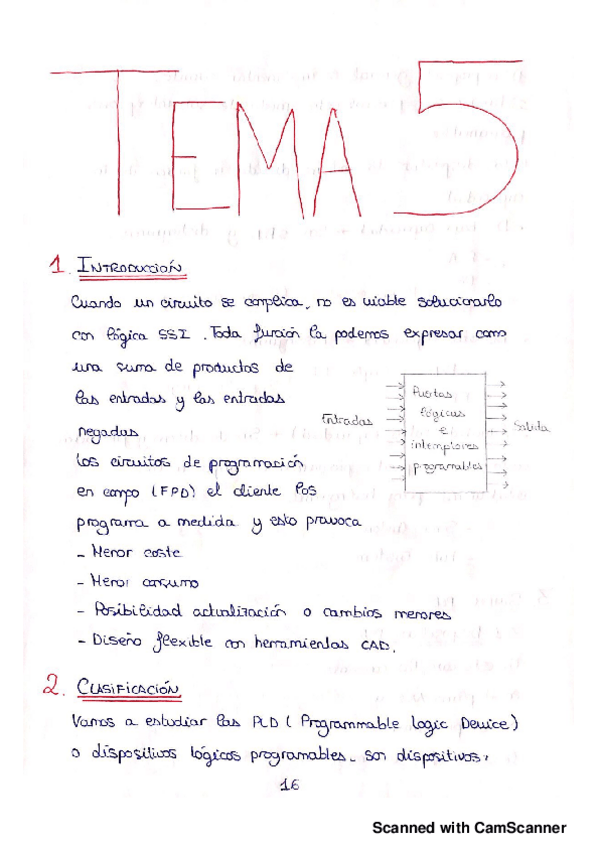 TEMA 5
1. INTRODUCCIÓN
Cuando un circuito se complica, no es viable solucionarlo
con lógica SSI. Toda función la podemos expresar como
una suma de productos de
las entradas y las entradas
negadas
Puertas
lógicas
e
interruptores
programables
Entradas
Salida
Los circuitos de programación
en campo (FPD) el cliente los
programa a medida y esto provoca
- Menor coste
- Menor consumo
- Posibilidad actualización o cambios menores
- Diseño flexible con herramientas CAD.
2. CLASIFICACIÓN
Vamos a estudiar las PLD (Programmable Logic Device)
o dispositivos lógicos programables. Son dispositivos
16
Scanned with CamScanner